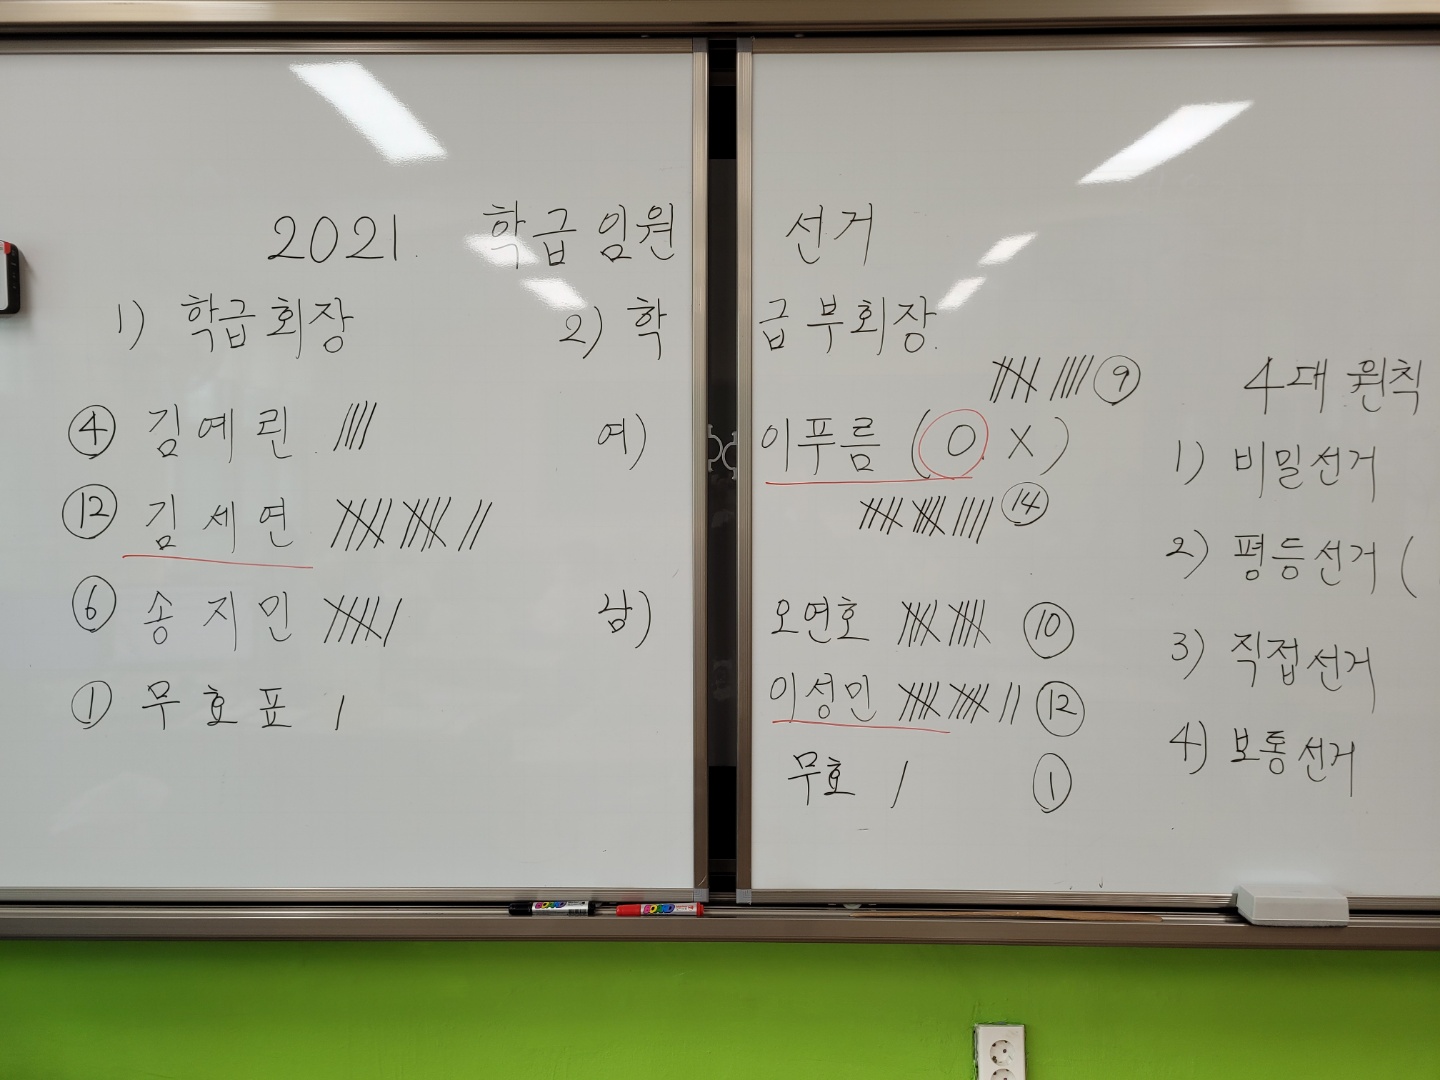 2021. 학급임원 선거
1) 학급회장
④ 김예린 ////
⑫ 김세연 卌 卌 //
⑥ 송지민 卌 /
① 무효표 /
2) 학급 부회장.
卌 //// ⑨
여) 이푸름 (O X)
卌 卌 //// ⑭
남) 오연호 卌 卌 ⑩
이성민 卌 卌 // ⑫
무효 / ①
4대 원칙
1) 비밀선거
2) 평등선거 (
3) 직접선거
4) 보통선거